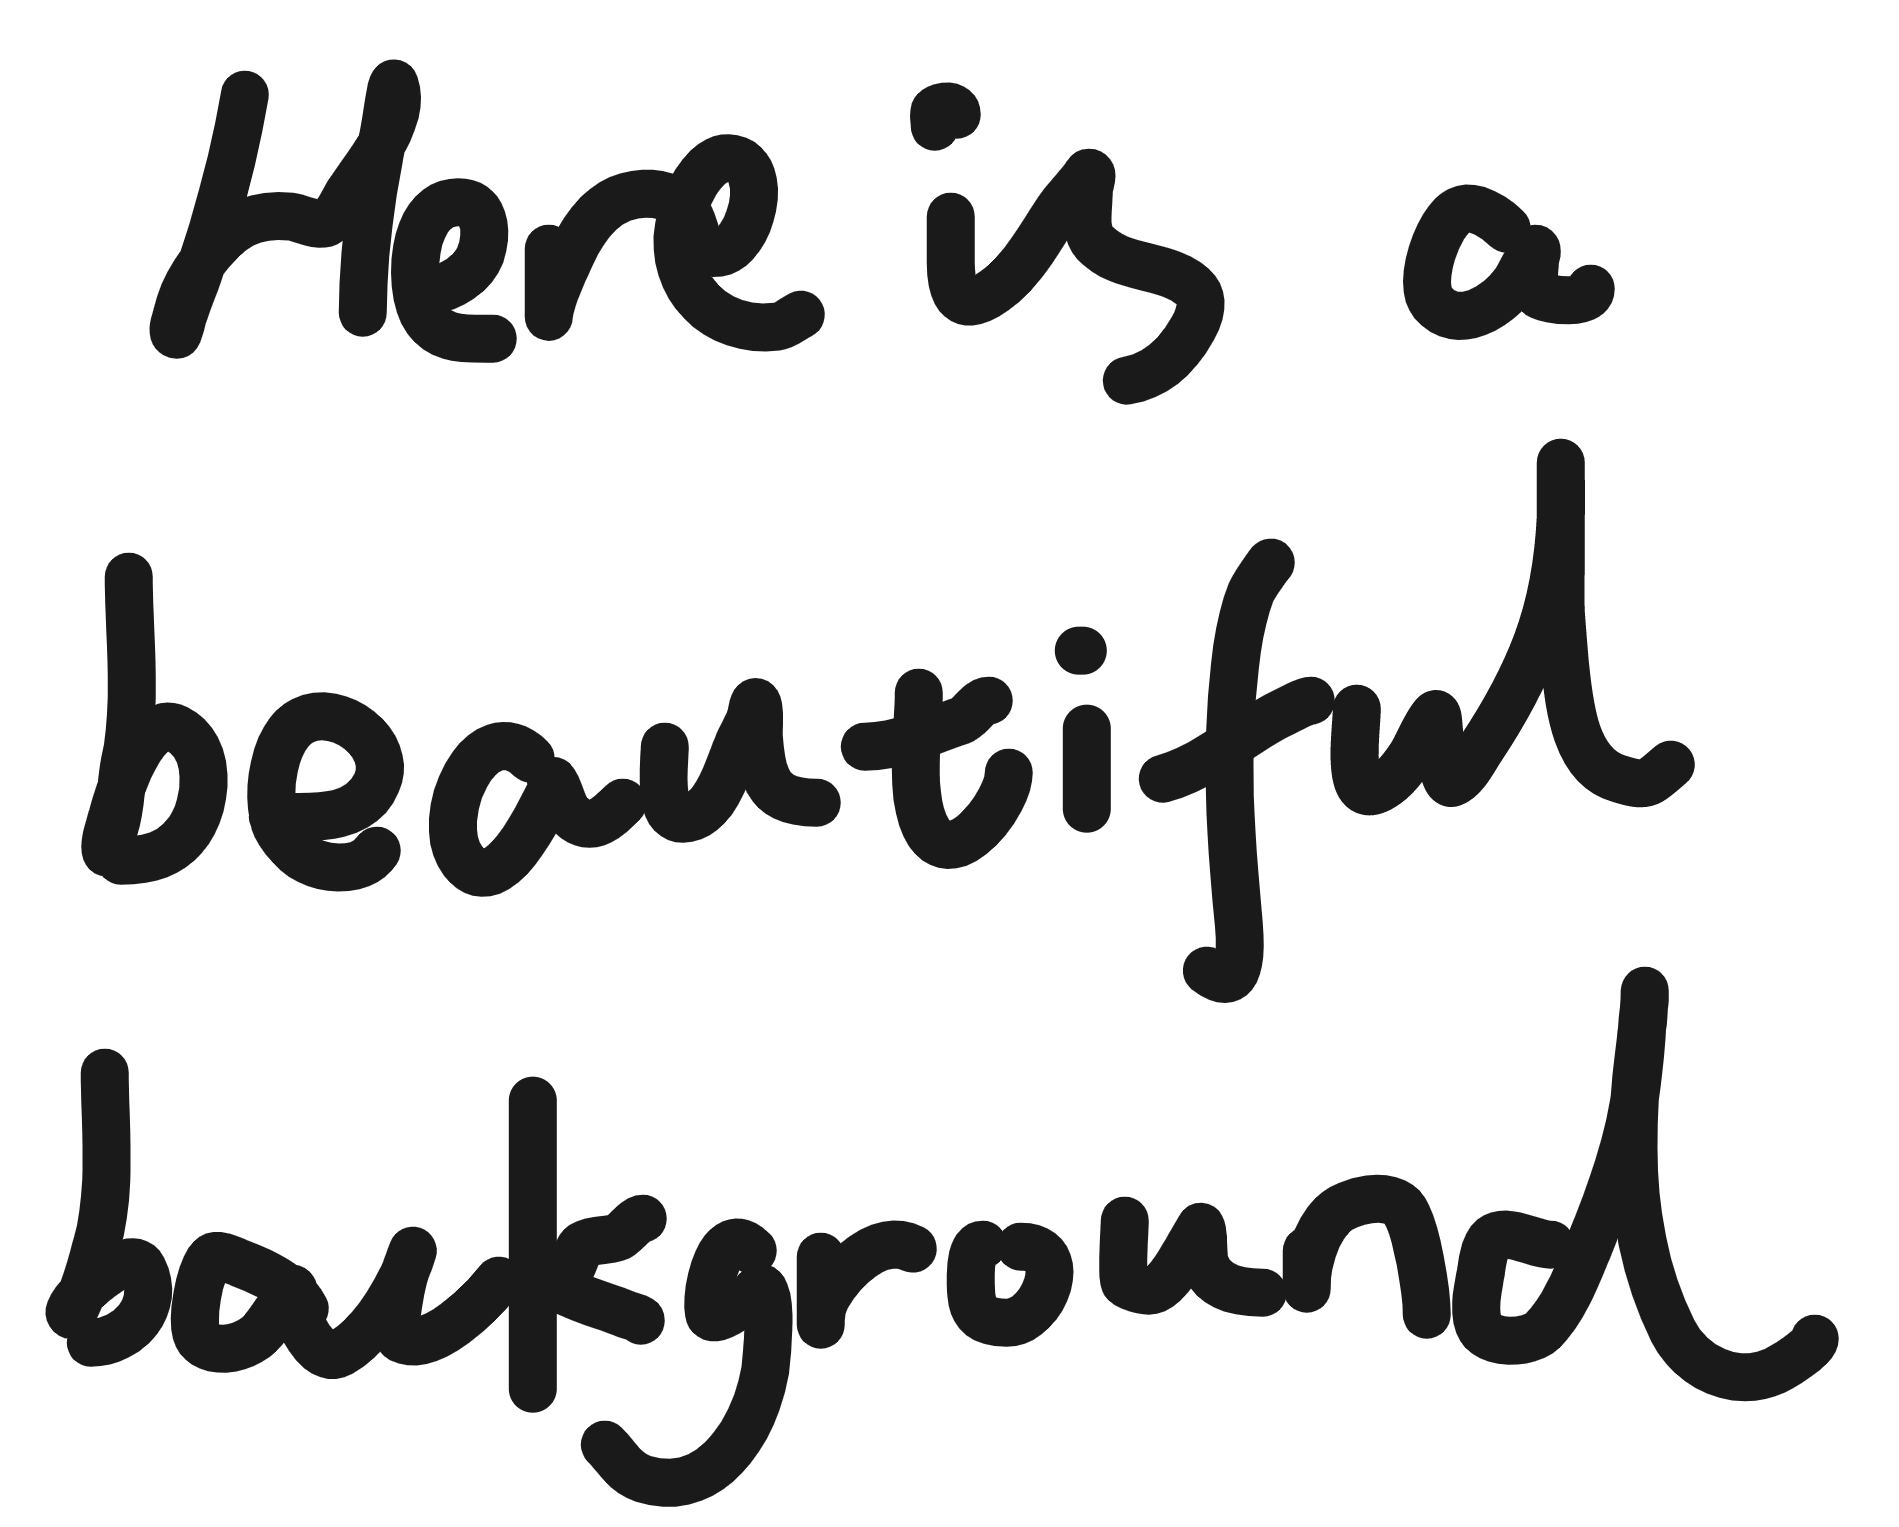 Here is a
beautiful
background